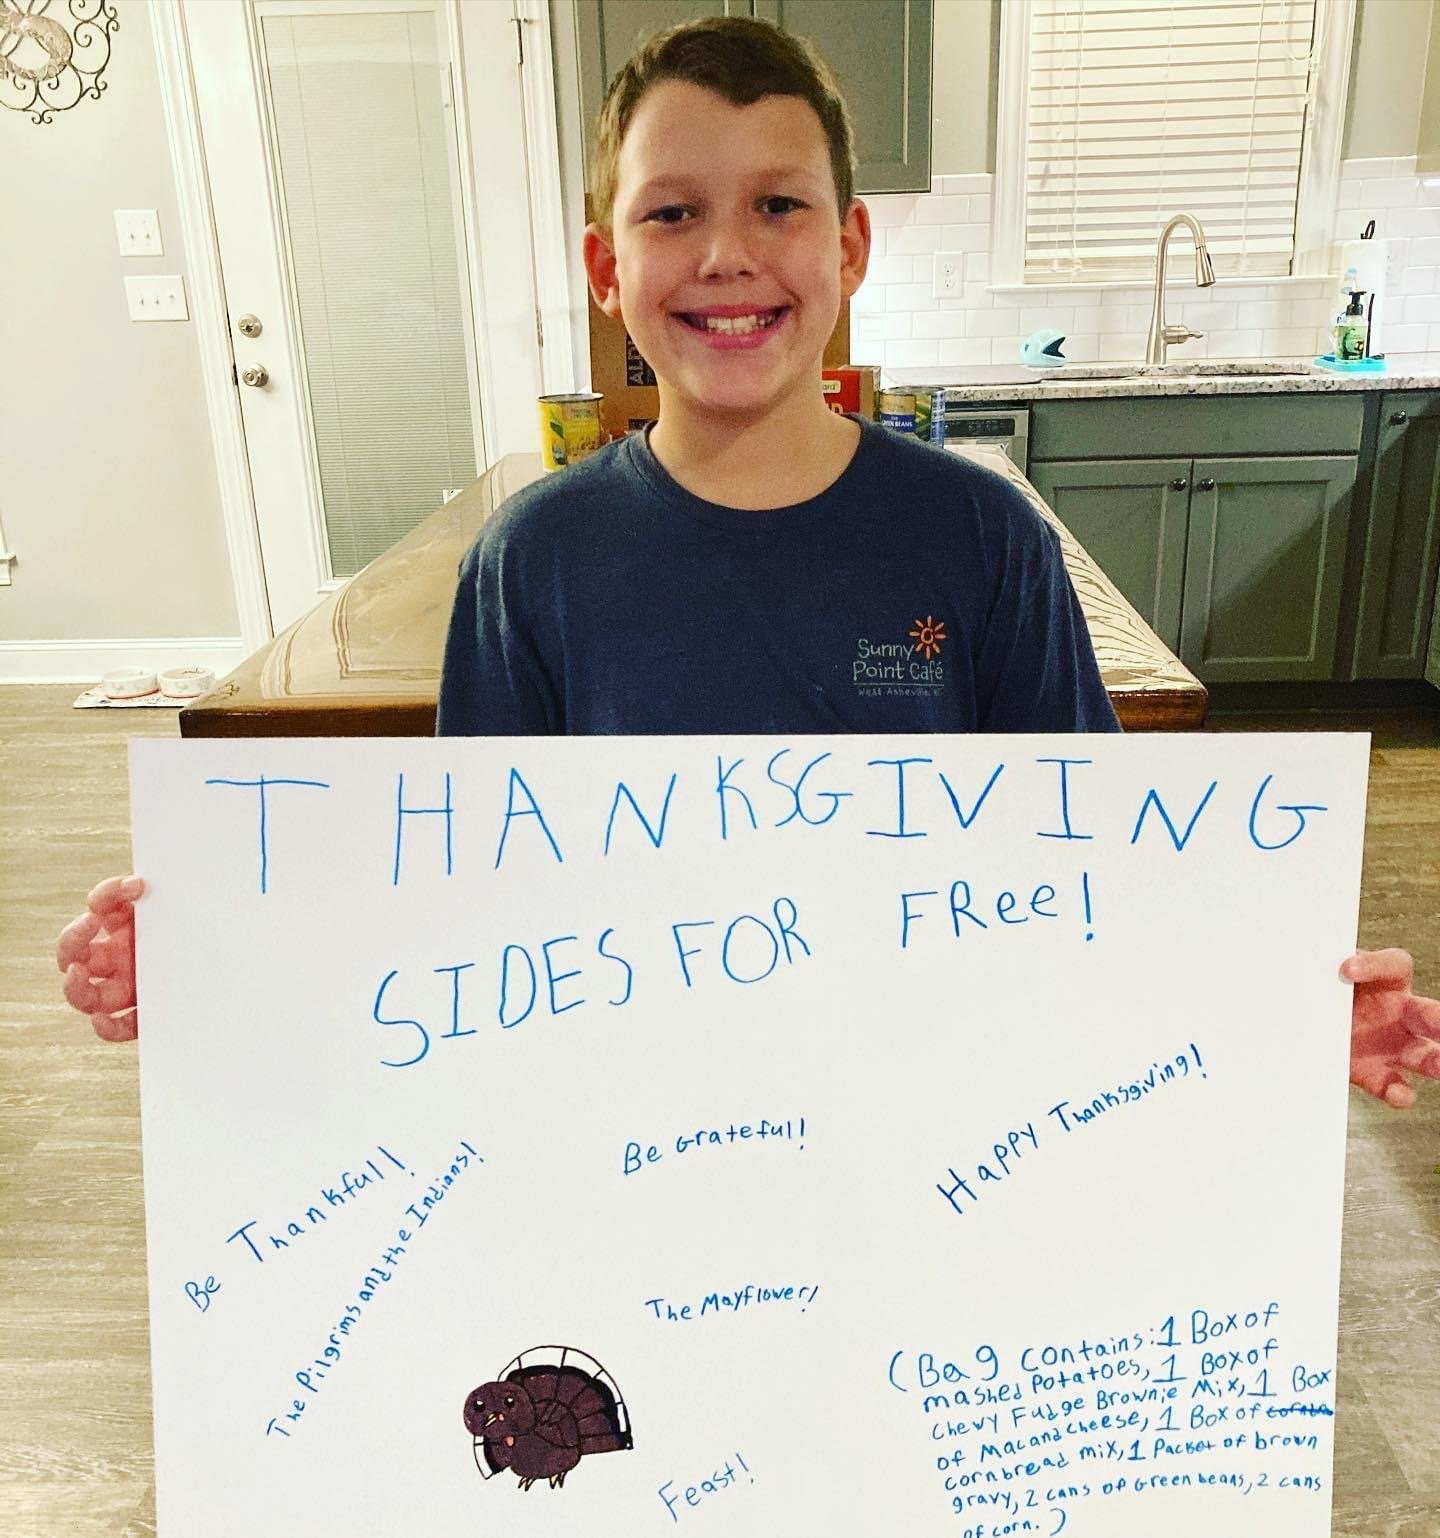 ALDI
ard
GREEN BEANS
Sunny
Point Café
West Asheville, NC
THANKSGIVING
SIDES FOR FRee!
Be Thankful!
The Pilgrims and the Indians!
Be Grateful!
Happy Thanksgiving!
The Mayflower!
Feast!
(Bag contains: 1 Box of
mashed potatoes, 1 Box of
chewy Fudge Brownie Mix, 1 Box
of Mac and cheese, 1 Box of
cornbread mix, 1 Packet of brown
gravy, 2 cans of Green beans, 2 cans
of corn.)